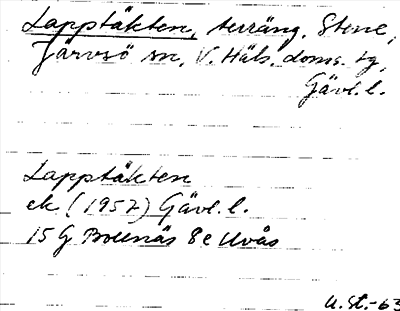 Lapptäkten, terräng. Stene,
Järvsö sn, V. Häls. doms. tg,
Gävl. l.
Lapptäkten
ek (1957) Gävl. l.
15 G Bollnäs 8e Uvås
U. St. -63